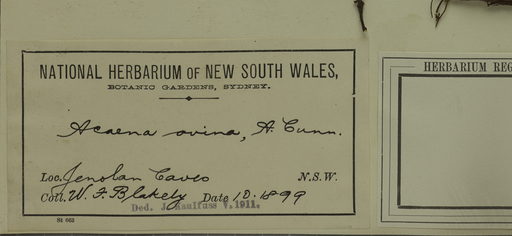 NATIONAL HERBARIUM OF NEW SOUTH WALES,
BOTANIC GARDENS, SYDNEY.
Acaena ovina, A. Cunn.
Loc. Jenolan Caves N.S.W.
Coll. W. F. Blakely Date 10.1899
Ded. J. Kaulfuss V. 1911.
St 663
HERBARIUM REG